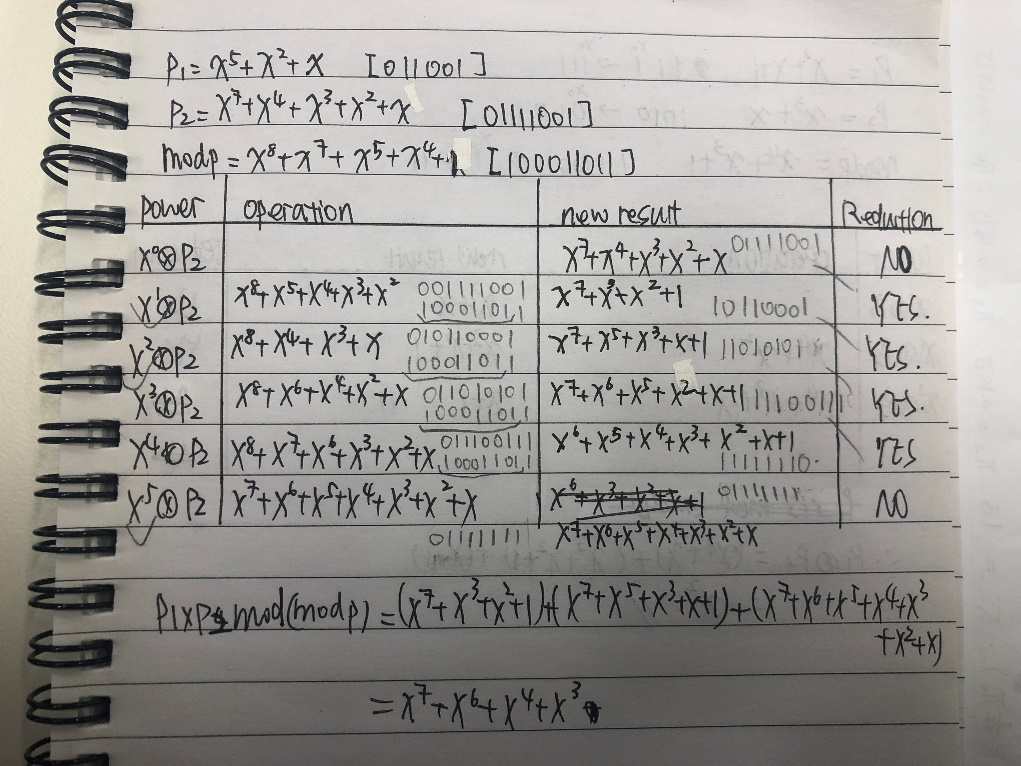 P₁ = x⁵+x²+x [011001]
P₂ = x⁷+x⁴+x³+x²+x [01111001]
modp = x⁸+x⁷+x⁵+x⁴+1 [100011011]
power operation new result Reduction
x⁰⊗P₂ x⁷+x⁴+x³+x²+x 01111001 NO
x¹⊗P₂ x⁸+x⁵+x⁴+x³+x² 001111001 100011011 x⁷+x³+x²+1 10110001 YES.
x²⊗P₂ x⁸+x⁴+x³+x 010110001 100011011 x⁷+x⁵+x³+x+1 11010101 YES.
x³⊗P₂ x⁸+x⁶+x⁴+x²+x 011010101 100011011 x⁷+x⁶+x⁵+x²+x+1 11100111 YES.
x⁴⊗P₂ x⁸+x⁷+x⁶+x³+x²+x 011100111 100011011 x⁶+x⁵+x⁴+x³+x²+x+1 11111110. YES
x⁵⊗P₂ x⁷+x⁶+x⁵+x⁴+x³+x²+x 01111111 NO
01111111 x⁷+x⁶+x⁵+x⁴+x³+x²+x
P1xP2 mod(modp) = (x⁷+x³+x²+1)+(x⁷+x⁵+x³+x+1)+(x⁷+x⁶+x⁵+x⁴+x³
+x²+x)
= x⁷+x⁶+x⁴+x³